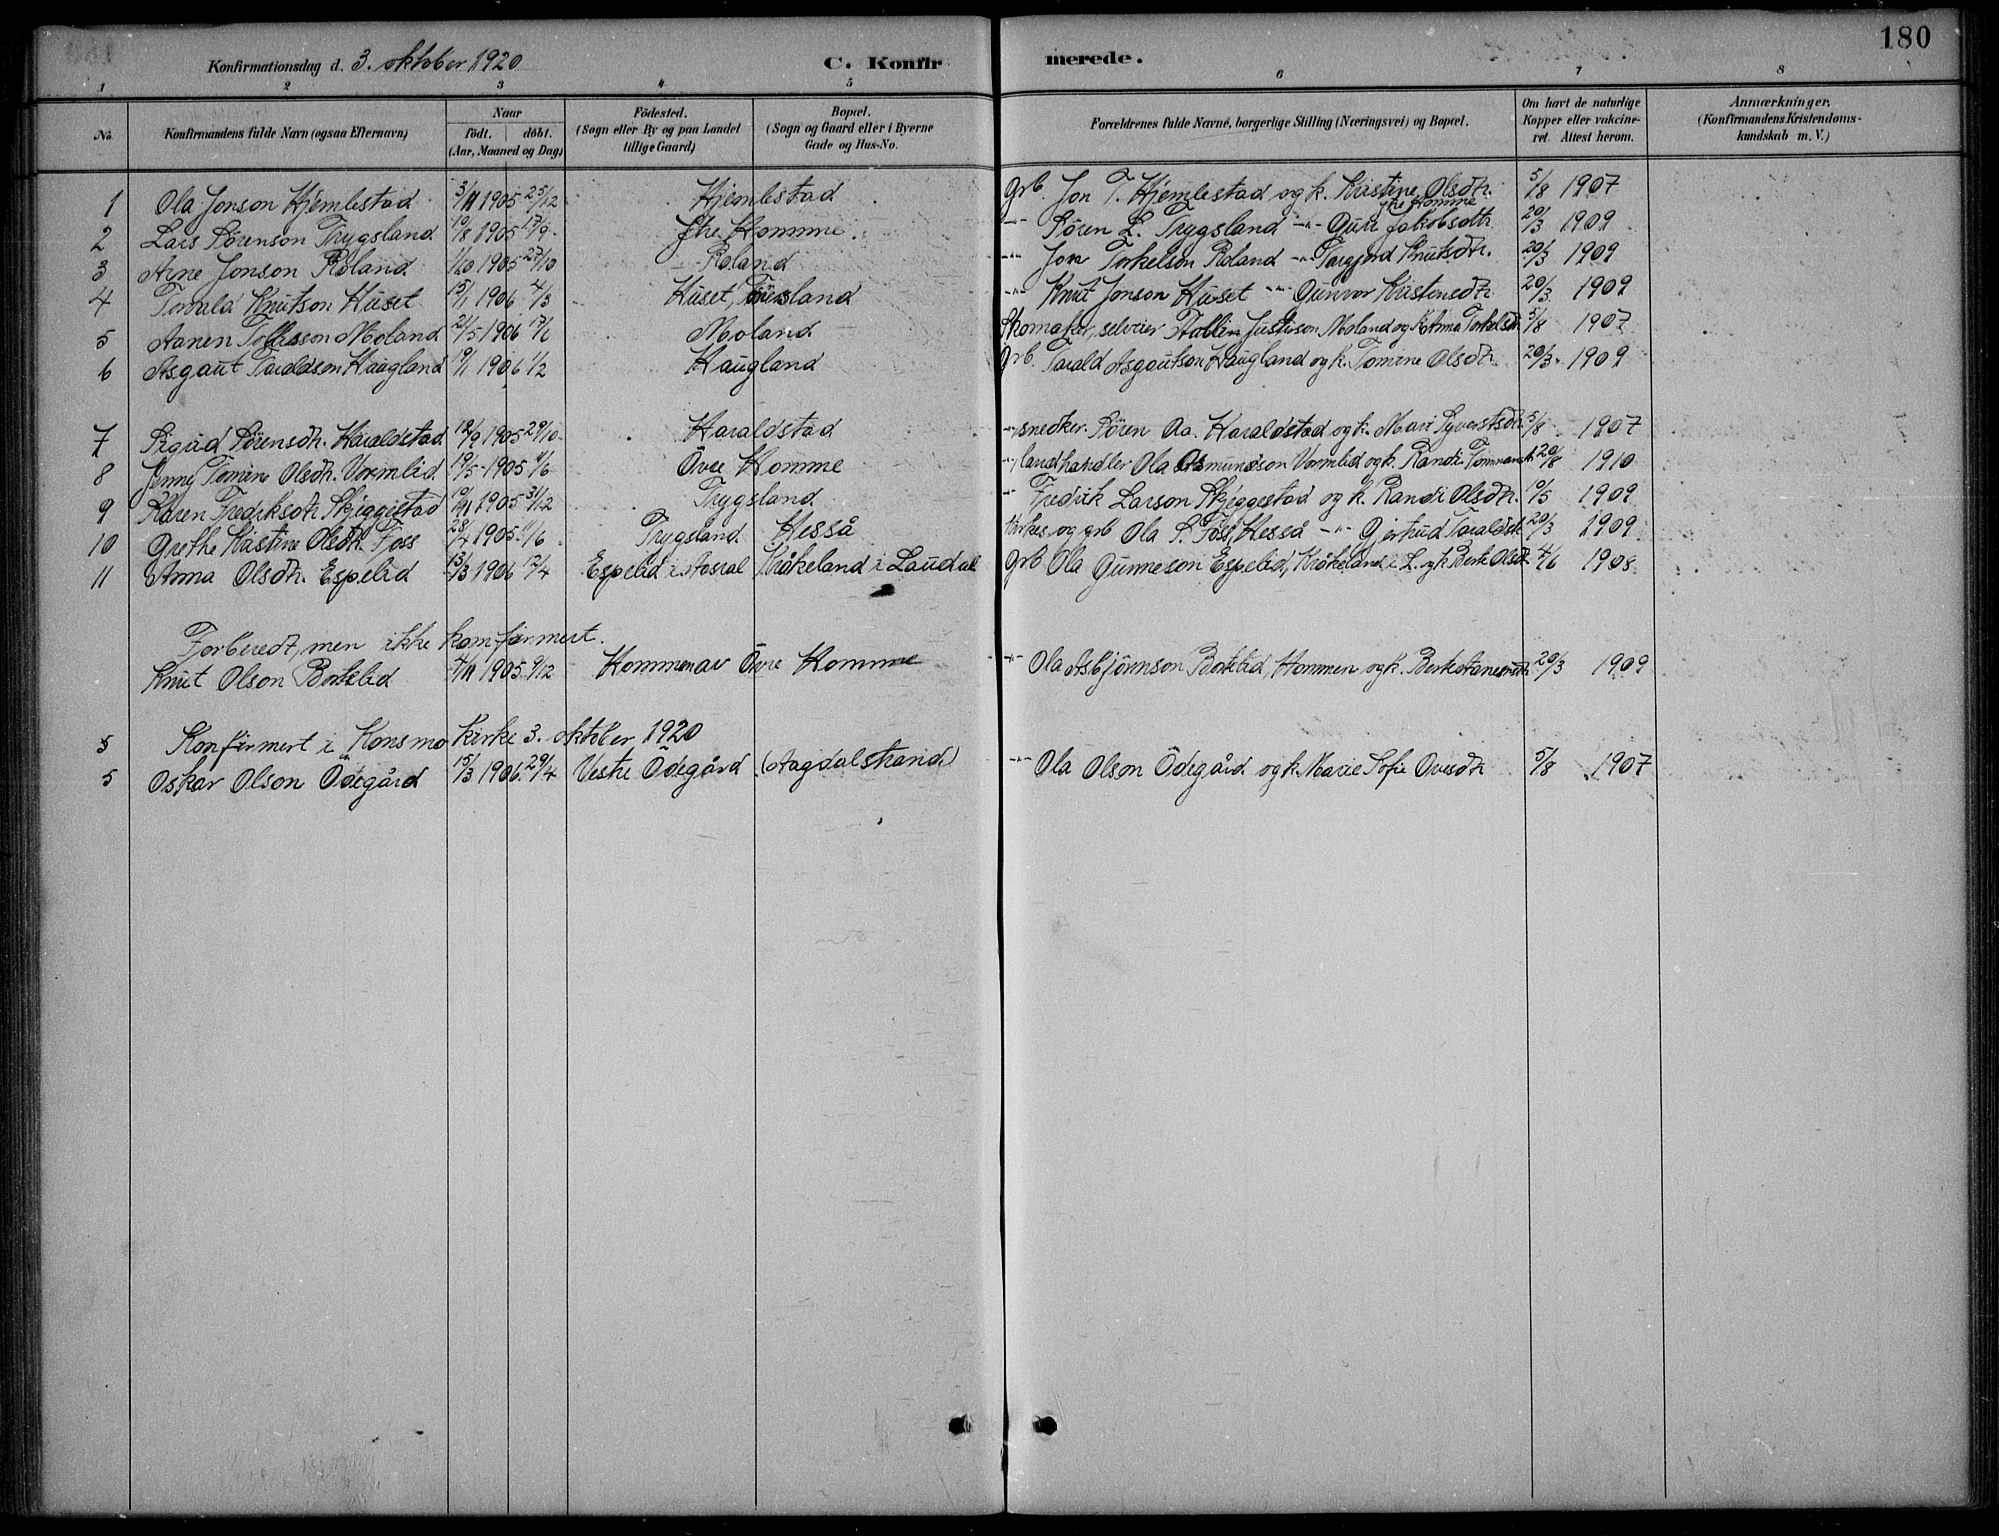 180
Konfirmationsdag d. 3. oktober 1920 C. Konfirmerede.
1 2 3 4 5 6 7 8
No. Konfirmandens fulde Navn (ogsaa Efternavn) Naar födt. döbt. (Aar, Maaned og Dag) Födested. (Sogn eller By og paa Landet tillige Gaard) Bopæl. (Sogn og Gaard eller i Byerne Gade og Hus-No. Forældrenes fulde Navne, borgerlige Stilling (Næringsvei) og Bopæl. Om havt de naturlige Kopper eller vakcineret. Attest herom. Anmærkninger. (Konfirmandens Kristendomskundskab m. V.)
1 Ola Jonson Hjemlestad 3/11 1905 25/12 Hjemlestad Grb. Jon T. Hjemlestad og k. Kristine Olsdtr. 5/8 1907
2 Lars Sörenson Trygsland 19/8 1905 17/9 Ytre Homme -"- Sören L. Trygsland -"- Guri Jakobsdtr ytre Homme 20/3 1909
3 Arne Jonson Röland 1/10 1905 27/10 Röland -"- Jon Torkelson Röland -"- Torgjerd Knutsdtr. 20/3 1909
4 Torvald Knutson Huset 15/1 1906 4/3 Huset, -"- Knut Jonson Huset -"- Gunvor Kristensdtr. 20/3 1909
5 Aanen Tollisson Moland 21/5 1906 17/6 Moland Skomaker, selveier Moland og k. Anna Torkelsdtr 5/8 1907
6 Asgaut Taraldson Haugland 19/1 1906 1/2 Haugland Grb. Tarald Asgautson Haugland og k. Tomine Olsdtr. 20/3 1909
7 Sigrid Sörensdtr. Haraldstad 18/9 1905 29/10 Haraldstad -"- snedker Sören Aa. Haraldstad og k. Mari Syvertsdtr 5/8 1907
8 Jenny Tomine Olsdtr. Vormlid 19/5 1905 11/6 Övre Homme -"- landhandler Ola Asmundson Vormlid og k. Randi 20/8 1910
9 Karen Fredriksdtr. Skjeggestad 19/11 1905 31/12 Trygsland -"- Fredrik Larson Skjeggestad og k. Randi Olsdtr. 19/5 1909
10 Grethe Kristine Olsdtr. Foss 28/4 1905 11/6 Trygsland Hesså Kirkes. og grb Ola S. Foss, Hesså -"- Gjertrud Taraldsdtr 20/3 1909
11 Anna Olsdtr. Espelid 13/3 1906 17/4 Espelid i Aasral Kråkeland i Laudal Grb Ola Gunneson Espelid, Kråkeland i L. og k. Berte Olsdtr 4/6 1908
Forberedt, men ikke konfirmert.
Knut Olson Birkelid 4/11 1905 9/12 Hommen av Övre Homme -"- Ola Asbjörnson Birkelid, Hommen og k. Berte 20/3 1909
5 Konfirmert i Konsmo kirke 3. oktober 1920
5 Oskar Olson Ödegård 15/3 1906 29/4 Vestre Ödegård (Aagdalstrand) -"- Ola Olson Ödegård og k. Marie Sofie Ovesdtr 5/8 1907